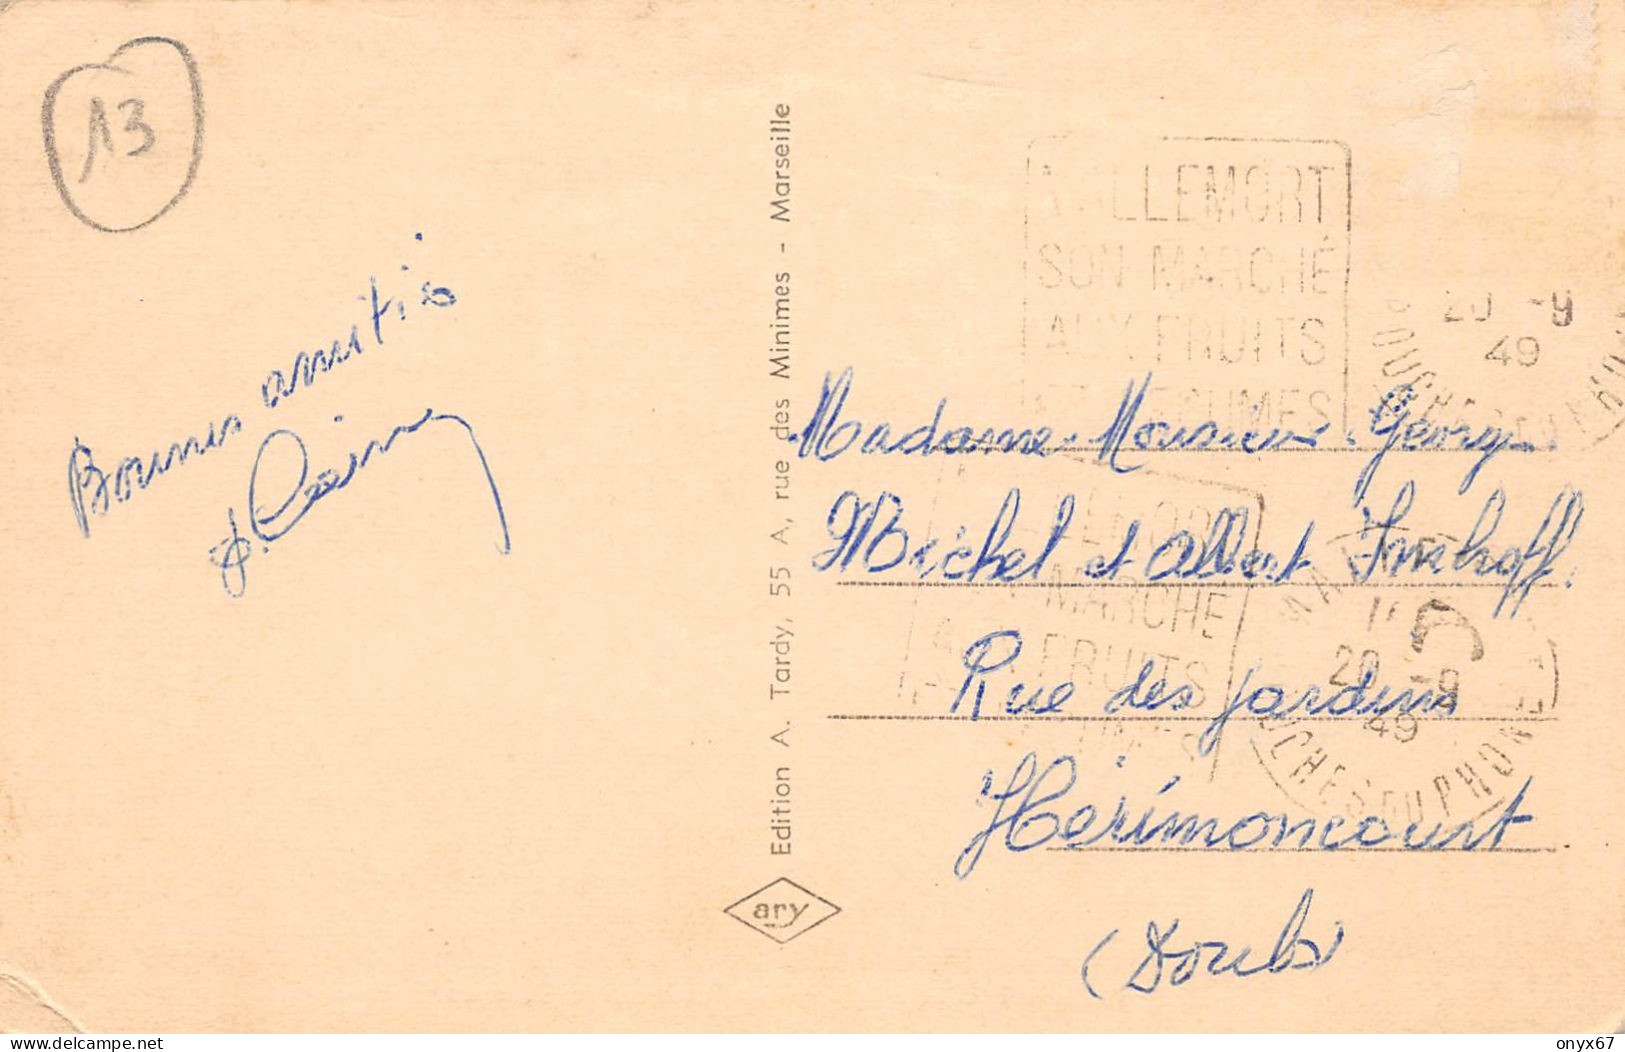 13
Bonnes amitiés
Edition A. Tardy, 55 A, rue des Minimes - Marseille
ary
MALLEMORT
SON MARCHÉ
AUX FRUITS
ET LEGUMES
20 -9
49
BOUCHES DU RHONE
Madame. Monsieur. Georg
Michel et Albert Imhoff.
Rue des jardins
Hérimoncourt
(Doubs)
MALLEMORT
SON MARCHÉ
AUX FRUITS
ET LEGUMES
20 -9
49
BOUCHES DU RHONE
delcampe.net
onyx67